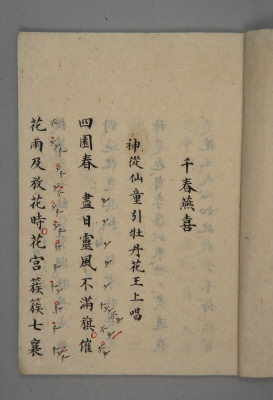 千春燕喜
神從仙童引牡丹花王上唱
四園春 盡日靈風不滿旗催
花雨及放花時花宮簇簇七襄